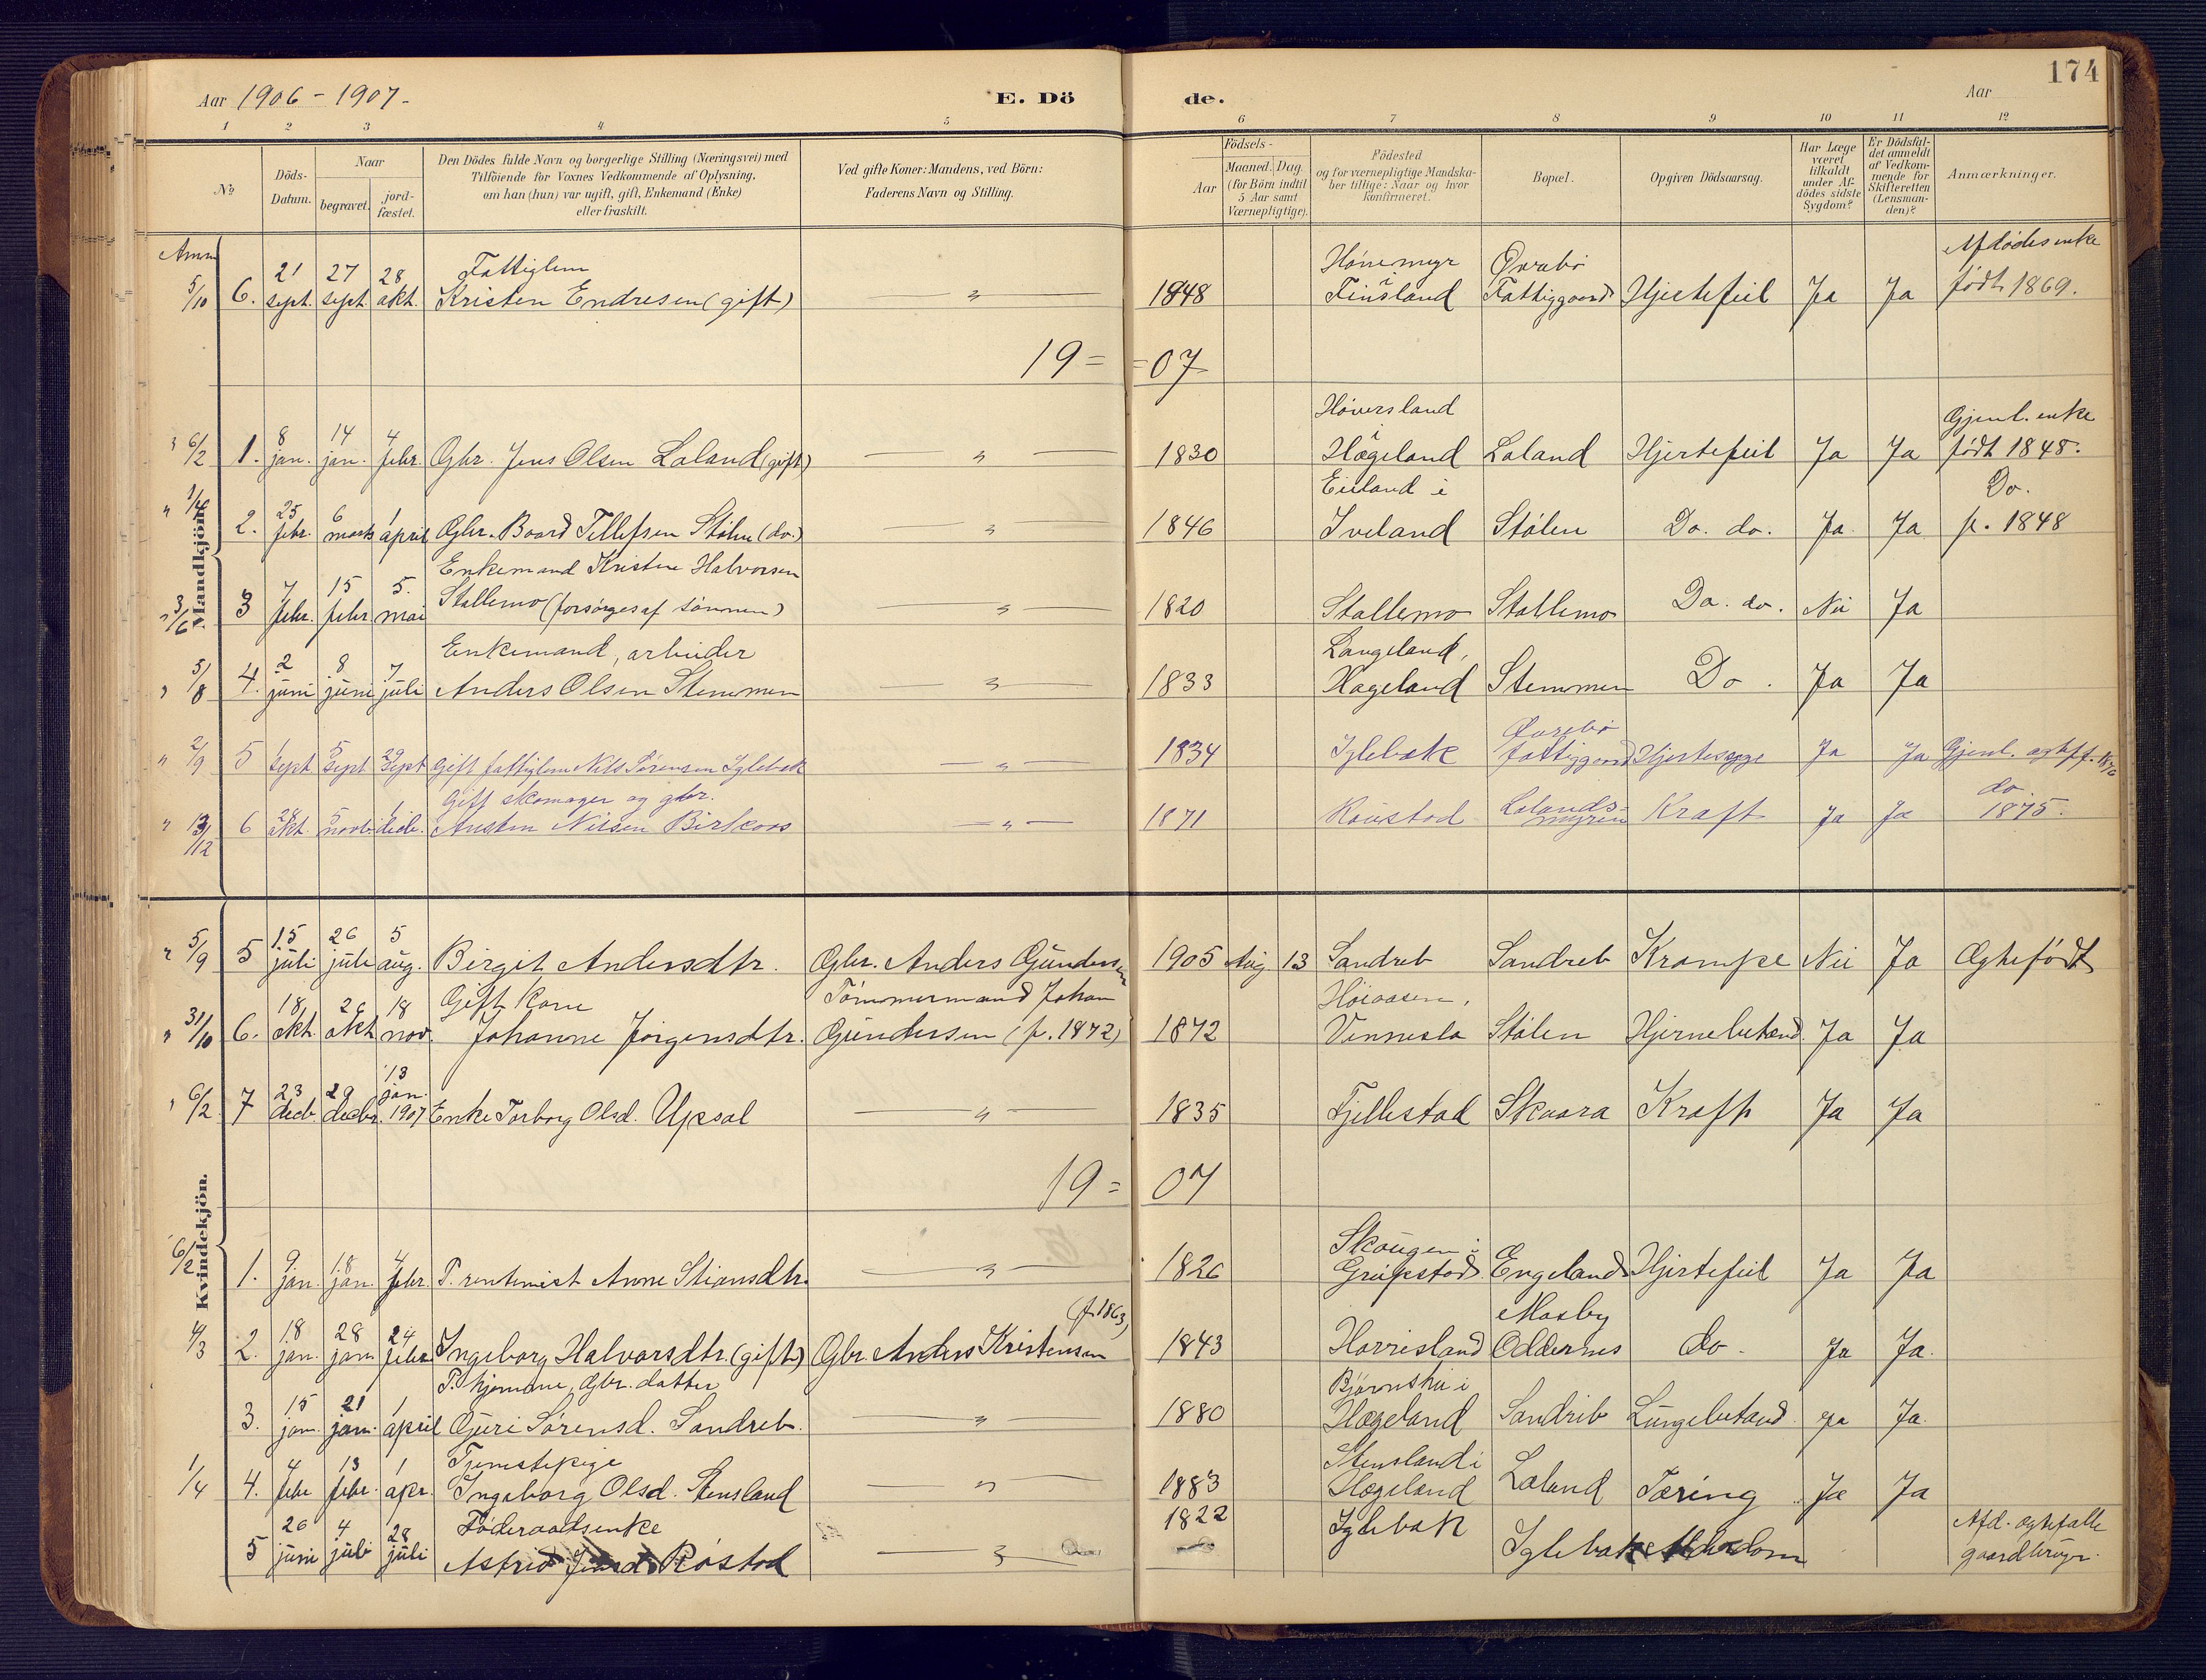 174
Aar 1906 - 1907.
E. Dö de.
Aar
1 2 3 4 5 6 7 8 9 10 11 12
No
Döds-
Datum.
Naar
begravet.
jord-
fæstet.
Den Dödes fulde Navn og borgerlige Stilling (Næringsvei) med
Tilföiende for Voxnes Vedkommende af Oplysning,
om han (hun) var ugift, gift, Enkemand (Enke)
eller fraskilt.
Ved gifte Koner: Mandens, ved Börn:
Faderens Navn og Stilling.
Födsels-
Aar
Maaned. Dag.
(for Börn indtil
5 Aar samt
Værnepligtige).
Födested
og for værnepligtige Mandska-
ber tillige: Naar og hvor
konfirmeret.
Bopæl.
Opgiven Dödsaarsag.
Har Læge
været
tilkaldt
under Af-
dödes sidste
Sygdom?
Er Dödsfal-
det anmeldt
af Vedkom-
mende for
Skifteretten
(Lensman-
den)?
Anmærkninger.
Mandkjön.
Anm
21 27 28 Fattiglem Hønemyr i Øvrebø Afdødes enke
5/10 6. sept. sept. okt. Kristen Endresen (gift) " 1848 Finsland Fattiggaard Hjertefeil Ja Ja født 1869.
19 = = 07
8 14 4 Høiversland i Gjenl. enke
6/2 1. jan. jan. febr. Gbr. Jens Olsen Loland (gift) " 1830 Hægeland Loland Hjertefeil Ja Ja født 1848.
25 6 1 Eieland i Do.
1/4 2. febr. marts april Gbr. Baard Tellefsen Stølen (do.) " 1846 Iveland Stølen Do. do. Ja Ja f. 1848
7 15 5. Enkemand Kristen Halvorsen
3/6 3 febr. febr. mai Stallemo (forsørges af sønnen) " 1820 Stallemo Stallemo Do. do. Nei Ja
2 8 7 Enkemand, arbeider Langeland,
5/8 4. juni juni juli Anders Olsen Stemmen " 1833 Hægeland Stemmen Do. Ja Ja
1 5 29 Øvrebø
2/9 5 sept sept sept Gift fattiglem Nils Sørensen Iglebæk " 1834 Iglebæk fattiggaard Hjertesyge Ja Ja Gjenl. ægtef. 1836
28 5 1 Gift skomager og gbr. Lolands- do.
6 okt. novb. decb. Austen Nilsen Birkaas " 1871 Røistad myren Kræft Ja Ja 1875.
Kvindekjön.
15 26 5
5/9 5 juli juli aug. Birgit Andersdtr. Gbr. Anders Gundersen 1905 Aug. 13 Sandreb Sandreb Krampe Nei Ja Ægtefødt
18 26 18 Gift kone Tømmermand Johan Høiaasen,
31/10 6. okt. okt nov. Johanne Jørgensdtr. Gundersen (f. 1872) 1872 Vennesla Stølen Hjernebetænd. Ja Ja
23 29 13 jan.
6/2 7 decb. decbr. 1907 Enke Torborg Olsd. Upsal " 1835 Fjellestad Skaara Kræft Ja Ja
19 = 07
9 18 4 Skougen i
6/2 1. jan. jan. febr. P. rentenist Anne Stiansdtr. " 1826 Greipstad Engeland Hjertefeil Ja Ja
18 28 24 (f. 1863) Mosby
4/3 2. jan. jan. febr. Ingeborg Halvorsdtr. (gift) Gbr. Anders Kristensen 1843 Horrisland Oddernes do. Ja Ja.
15 21 1 P. hjemme, Gbr. datter Bjørnshei i
3. jan. jan. april Guri Sørensd. Sandreb. " 1880 Hægeland Sandrib Lungebetænd. Ja Ja.
4 13 1 Tjenestepige Stensland i
1/4 4. febr febr. apr. Ingeborg Olsd. Stensland " 1883 Hægeland Loland Tæring Ja Ja
26 4 28 Føderaadsenke 1822 Iglebæk Afd. ægtefælle
5 juni juli juli Astrid Røstad " Iglebæk Alderdom gaardbruger.